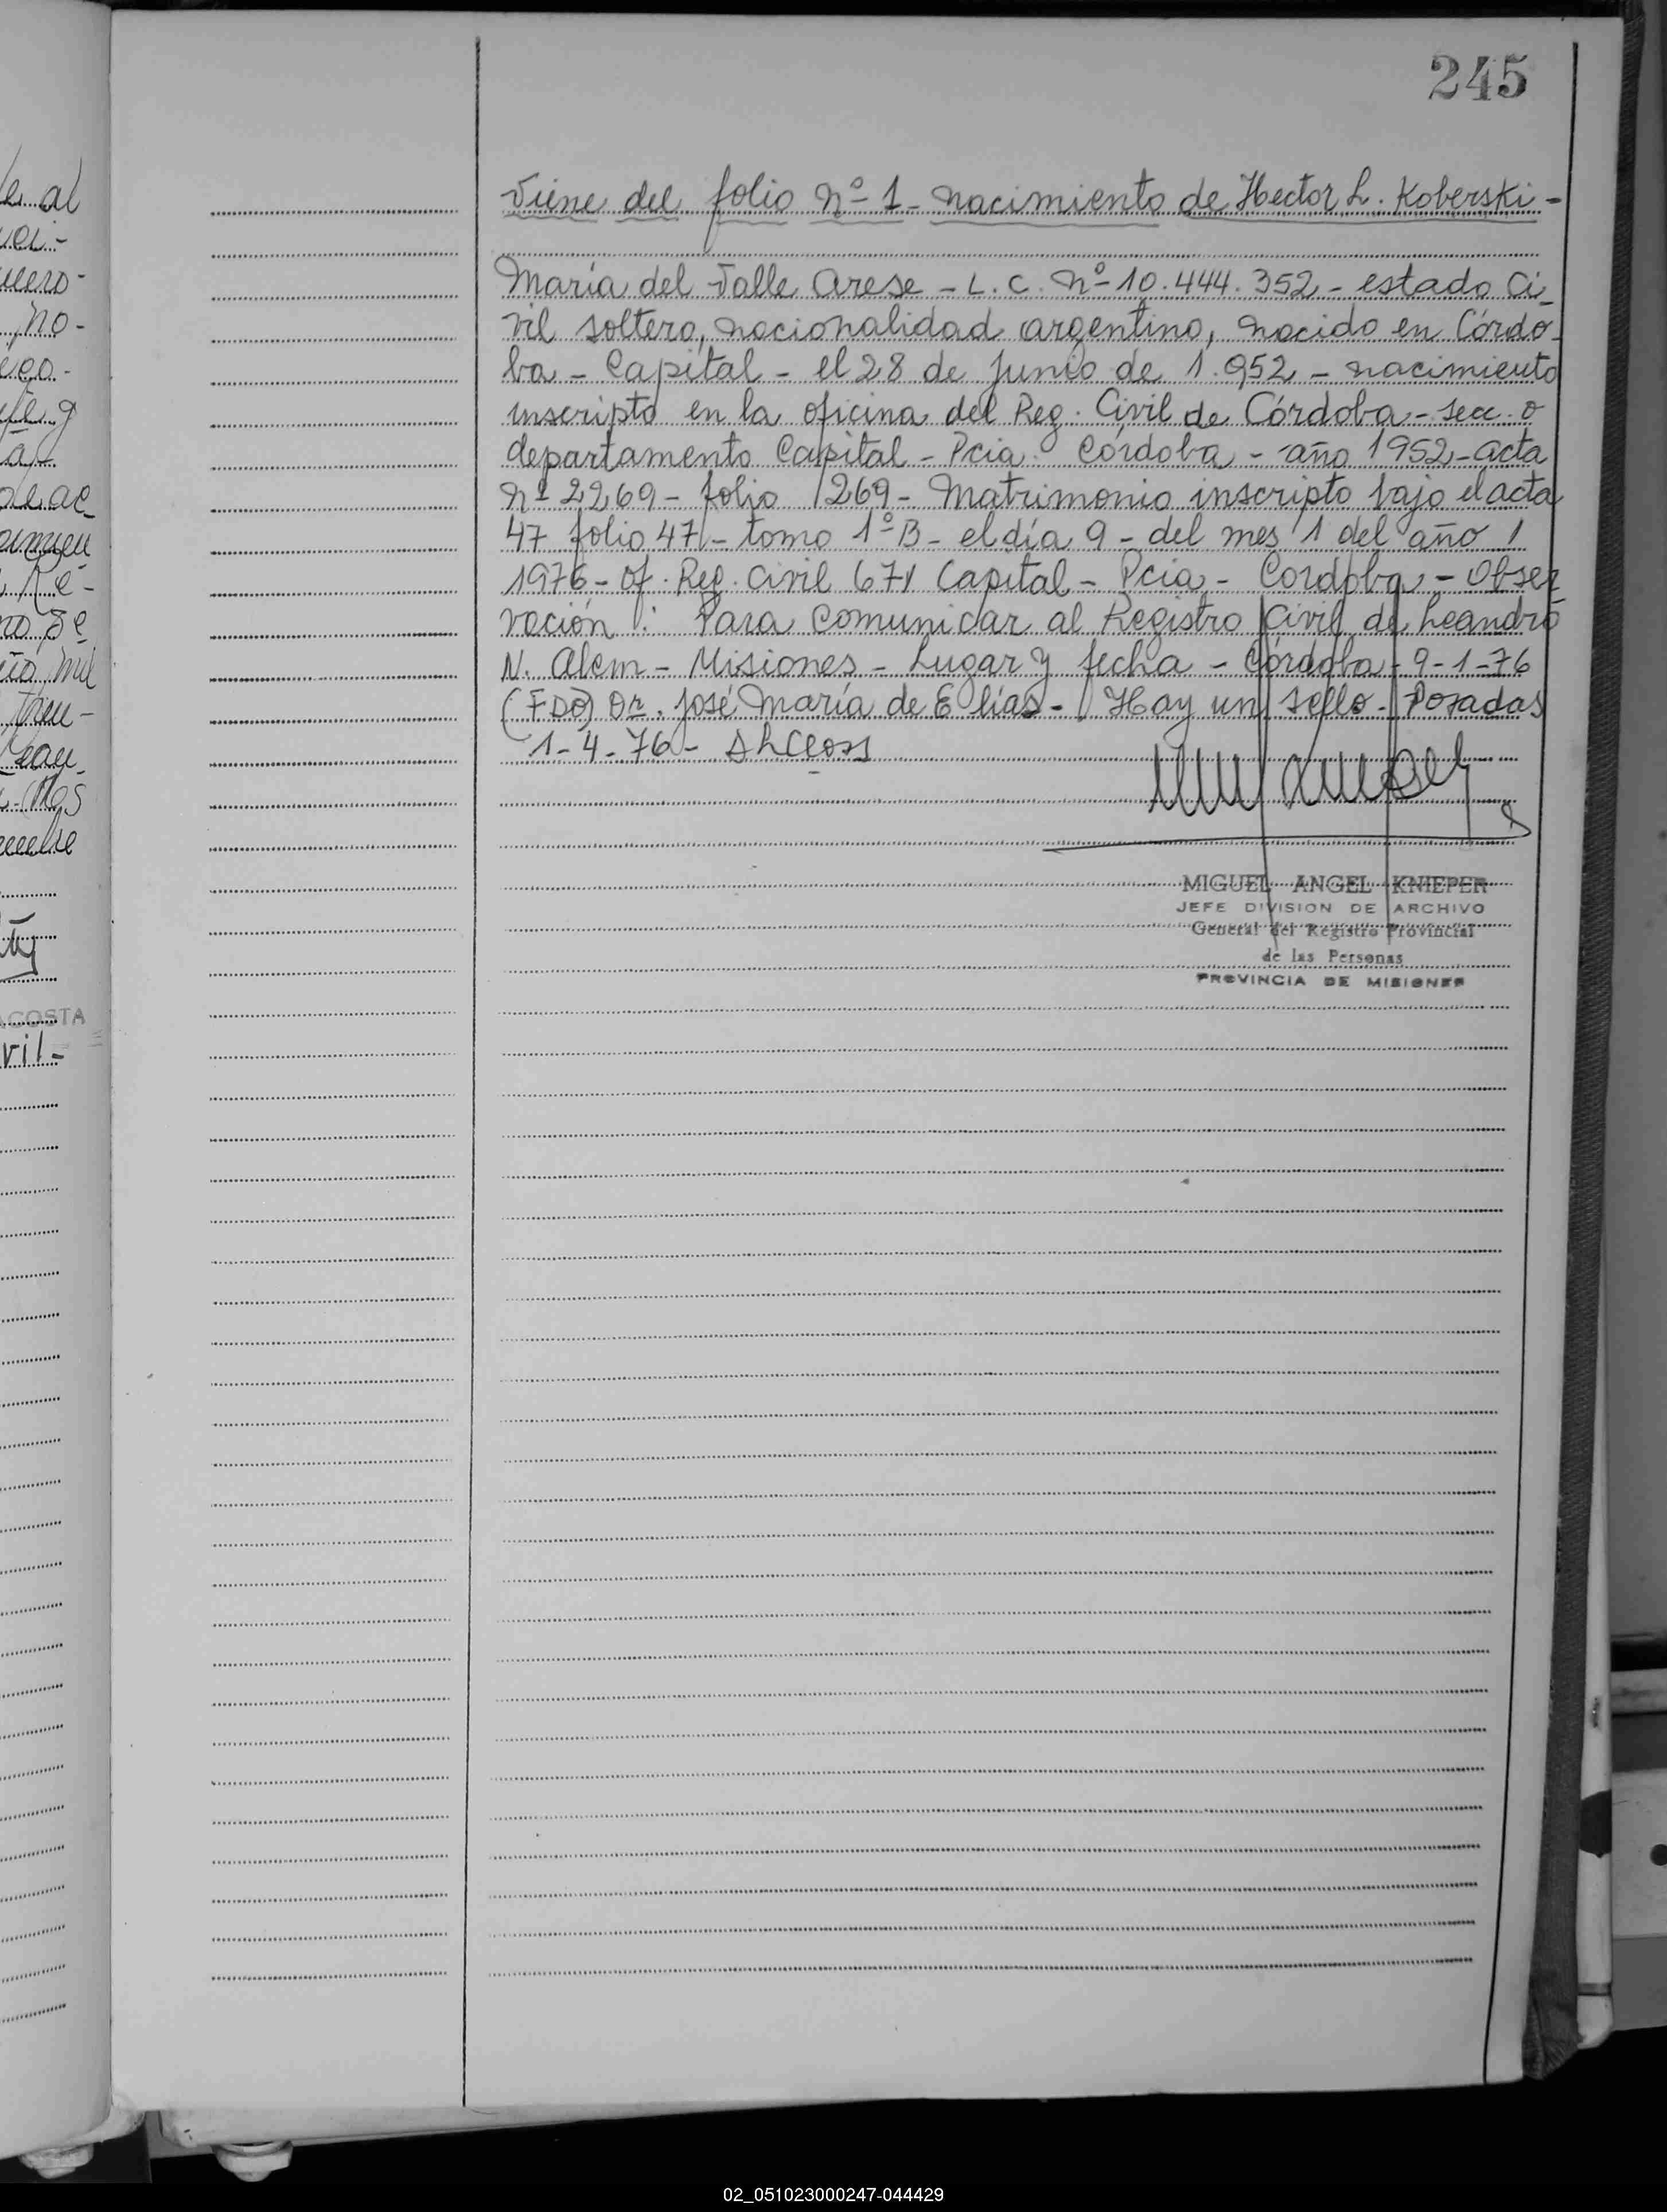 245
Viene del folio nº 1 - nacimiento de Hector L. Koberski -
María del Valle Arese - L. C. nº 10.444.352 - estado Ci-
vil soltera, nacionalidad argentina, nacida en Córdo-
ba - Capital - el 28 de Junio de 1.952 - nacimiento
inscripto en la oficina del Reg. Civil de Córdoba - secc. o
departamento Capital - Pcia. Córdoba - año 1952 - acta
nº 2269 - folio 1269 - Matrimonio inscripto bajo el acta
47 folio 47 - tomo 1º B - el día 9 - del mes 1 del año 1
1976 - Of. Reg. Civil 671 Capital - Pcia - Cordoba - Obser
vación: Para comunicar al Registro Civil de Leandro
N. Alem - Misiones - Lugar y fecha - Córdoba - 9-1-76
(FDO) Dr. José María de Elías - Hay un sello - Posadas
1-4-76 -
MIGUEL ANGEL KNIEPER
JEFE DIVISION DE ARCHIVO
General del Registro Provincial
de las Personas
PROVINCIA DE MISIONES
le al
no-
ACOSTA
vil -
02_051023000247-044429